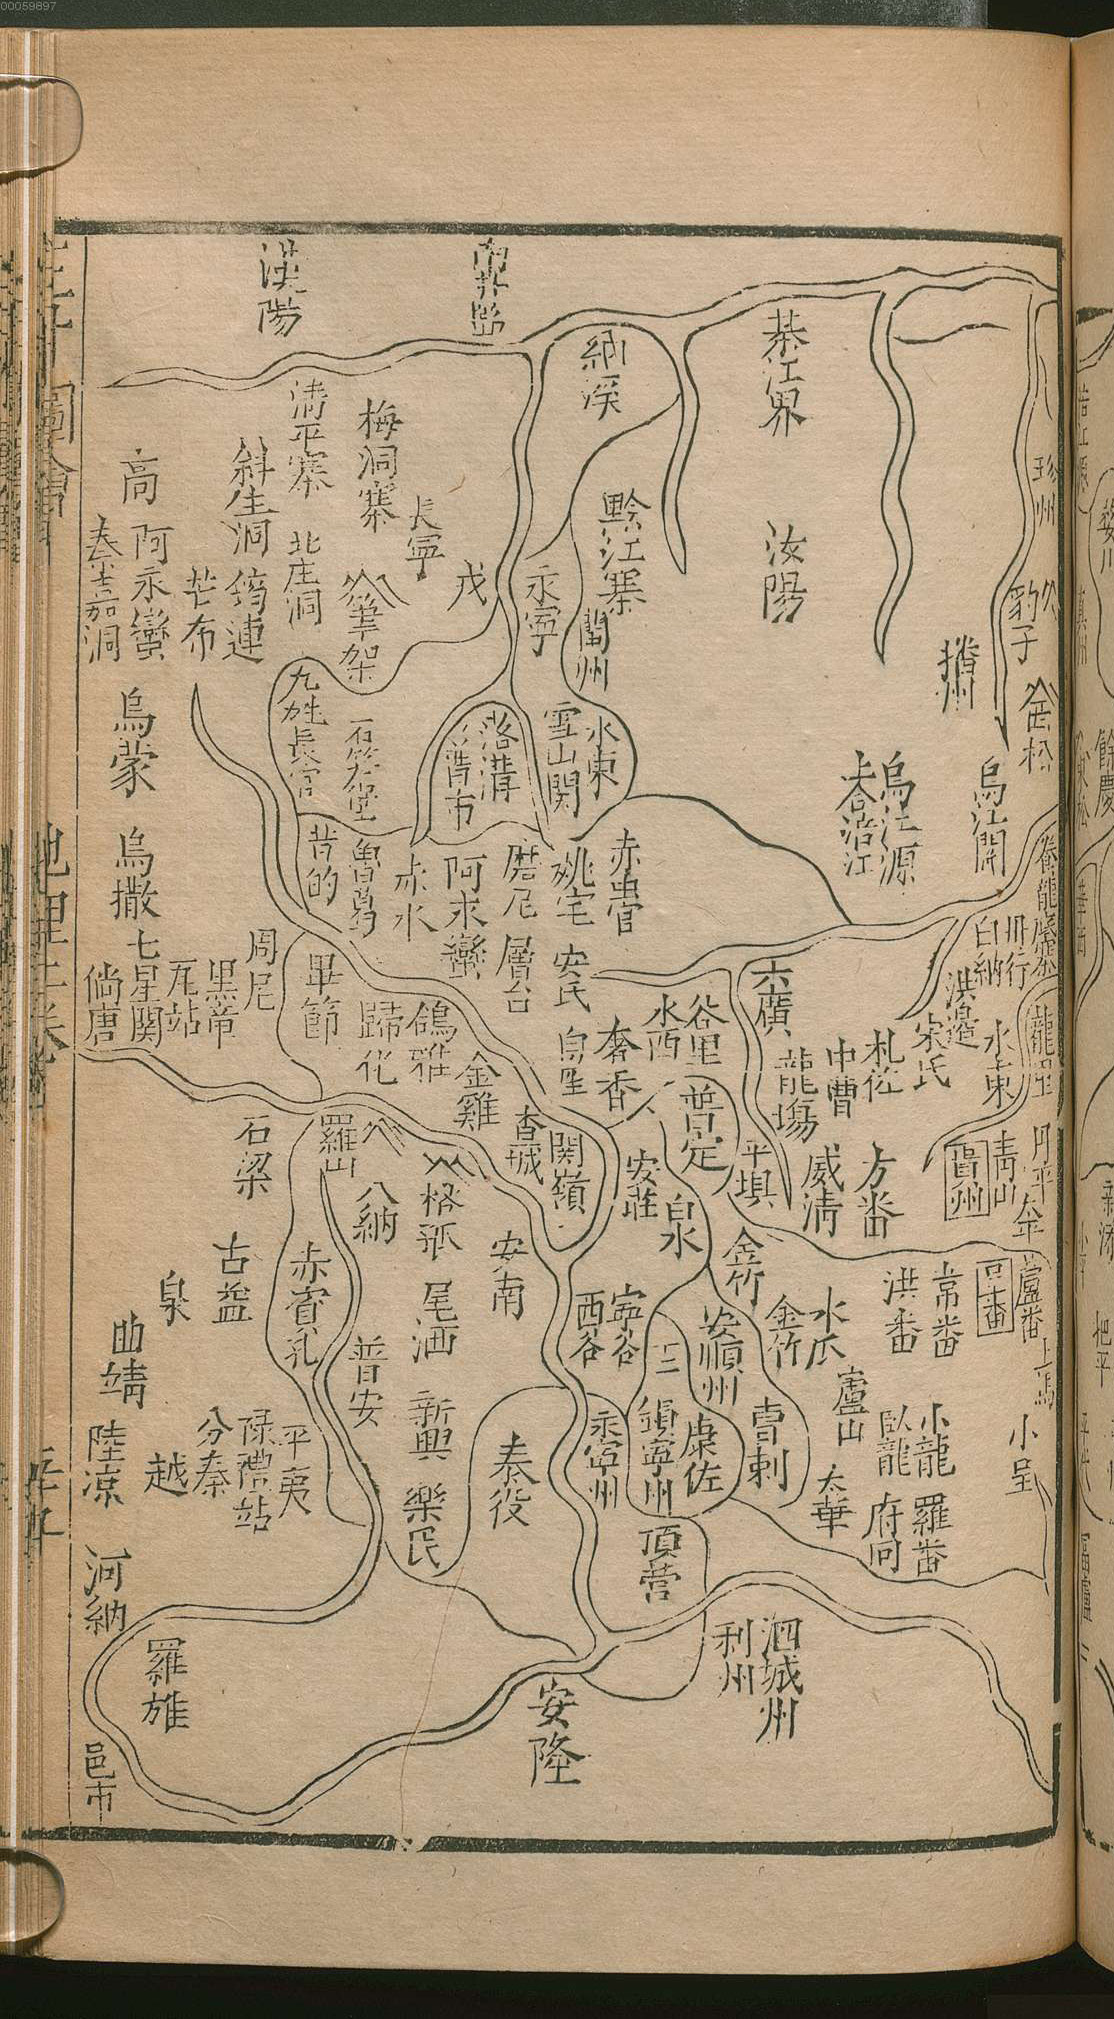 00059897
珍州
豹子
金松
烏江關
養龍坑
龍里
綦江界
汝陽
播州
烏江源
合涪江
納溪
黔江寨
藺州
永寧
水東
雪山關
落溝
普市
梅洞寨
長寧
戎
筆架
清平寨
北庄洞
九姓長官
漢陽
斜生洞
筠連
芒布
高
阿永蠻
烏蒙
烏撒
七星關
瓦站
黑章
周尼
倘唐
昔的
魯萬
赤水
阿永蠻
磨尼
姚宅
層台
安氏
畢節
歸化
金雞
奢香
水西
谷里
六廣
龍場
中曹
札佐
宋氏
洪邊
水東
白納
貴州
青山
威清
方番
平垻
普定
安莊
關嶺
白水
金竹
金竹
安順州
寧谷
西谷
康佐
鎮寧州
永寧州
頂營
羅山
八納
安南
尾洒
新興
樂民
普安
石梁
古益
泉
曲靖
陸凉
越
分秦
平夷
河納
羅雄
邑市
安隆
泗城州
利州
洪番
常番
盧番
上馬
盧山
臥龍
小龍
羅番
太華
小呈